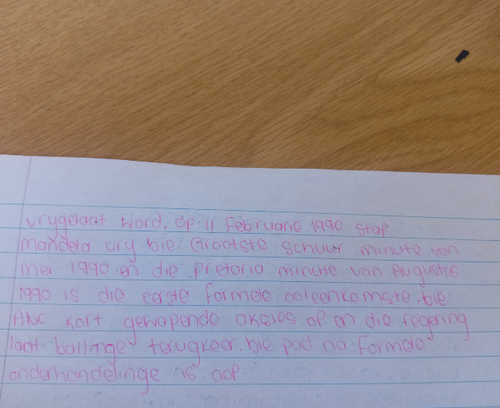 vrygelaat word. Op 11 Februarie 1990 stap
mandela vry. bie Grootste Schuur minute van
mei 1990 en die pretoria minute van Augustus
1990 is die eerste formele ooreenkomste. bie
ANC kort gewapende aksies op en die regering
laat ballinge terugkeer. bie pad na formele
onderhandelinge is oop